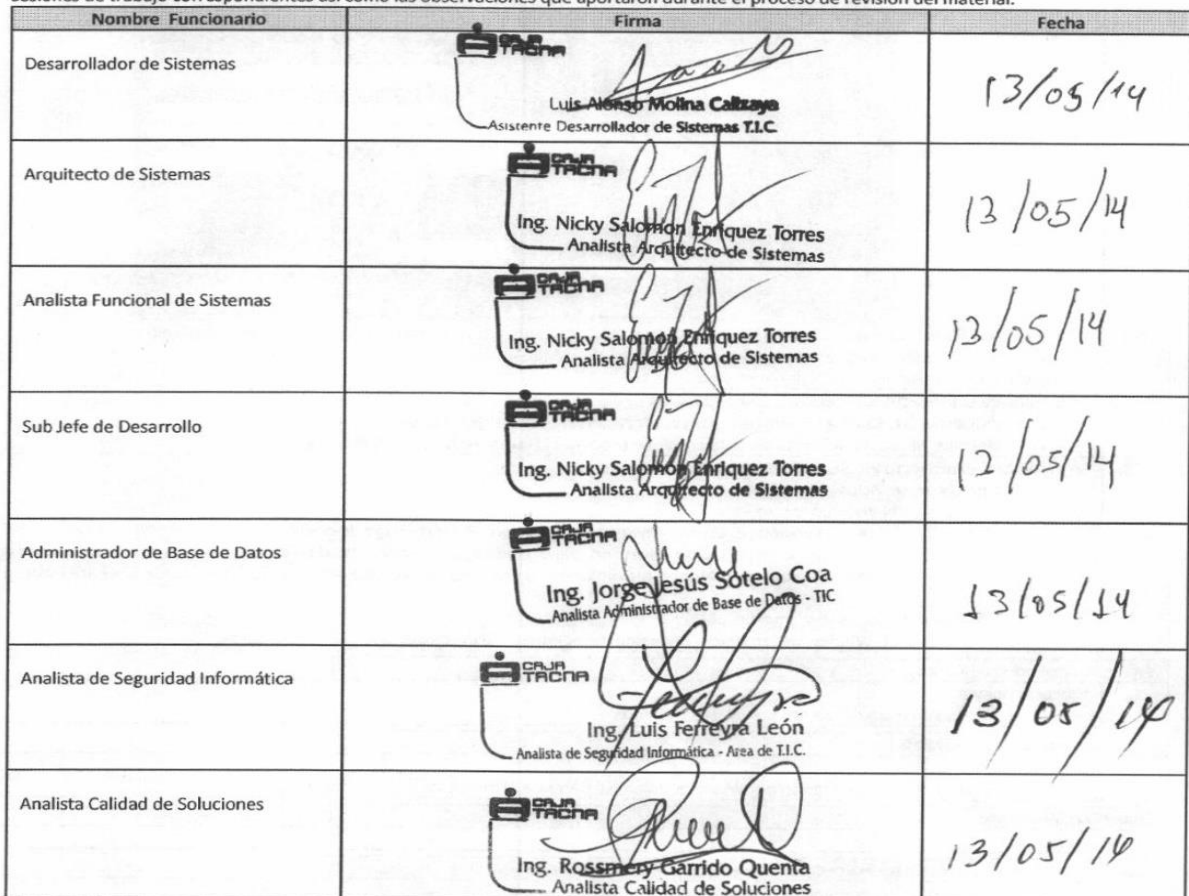 sesiones de trabajo correspondientes así como las observaciones que aportaron durante el proceso de revisión del material.
Nombre Funcionario Firma Fecha
Desarrollador de Sistemas
CAJA
TACNA
Luis Alonso Molina Calizaya
Asistente Desarrollador de Sistemas T.I.C.
13/05/14
Arquitecto de Sistemas
CAJA
TACNA
Ing. Nicky Salomón Enriquez Torres
Analista Arquitecto de Sistemas
13/05/14
Analista Funcional de Sistemas
CAJA
TACNA
Ing. Nicky Salomón Enriquez Torres
Analista Arquitecto de Sistemas
13/05/14
Sub Jefe de Desarrollo
CAJA
TACNA
Ing. Nicky Salomón Enriquez Torres
Analista Arquitecto de Sistemas
12/05/14
Administrador de Base de Datos
CAJA
TACNA
Ing. Jorge Jesús Sotelo Coa
Analista Administrador de Base de Datos - TIC
13/05/14
Analista de Seguridad Informática
CAJA
TACNA
Ing. Luis Ferreyra León
Analista de Seguridad Informática - Area de T.I.C.
13/05/14
Analista Calidad de Soluciones
CAJA
TACNA
Ing. Rossmery Garrido Quenta
Analista Calidad de Soluciones
13/05/14